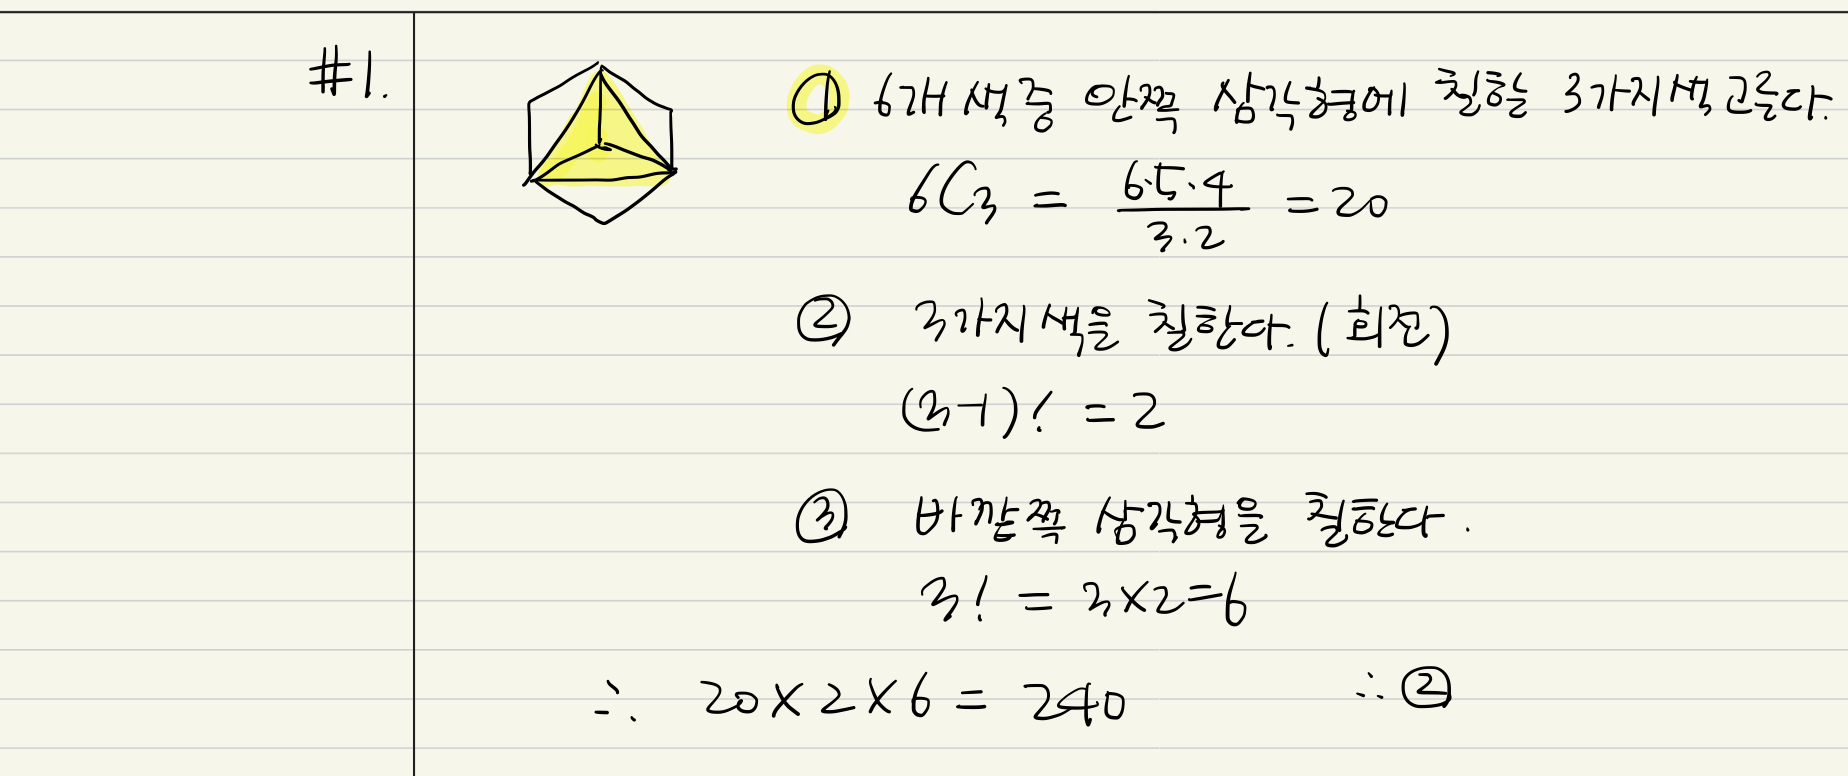 #1.
① 6개 색 중 안쪽 삼각형에 칠할 3가지 색 고른다.
6C3 = 6·5·4 / 3·2 = 20
② 3가지 색을 칠한다. (회전)
(3-1)! = 2
③ 바깥쪽 삼각형을 칠한다.
3! = 3×2=6
∴ 20×2×6 = 240 ∴ ②